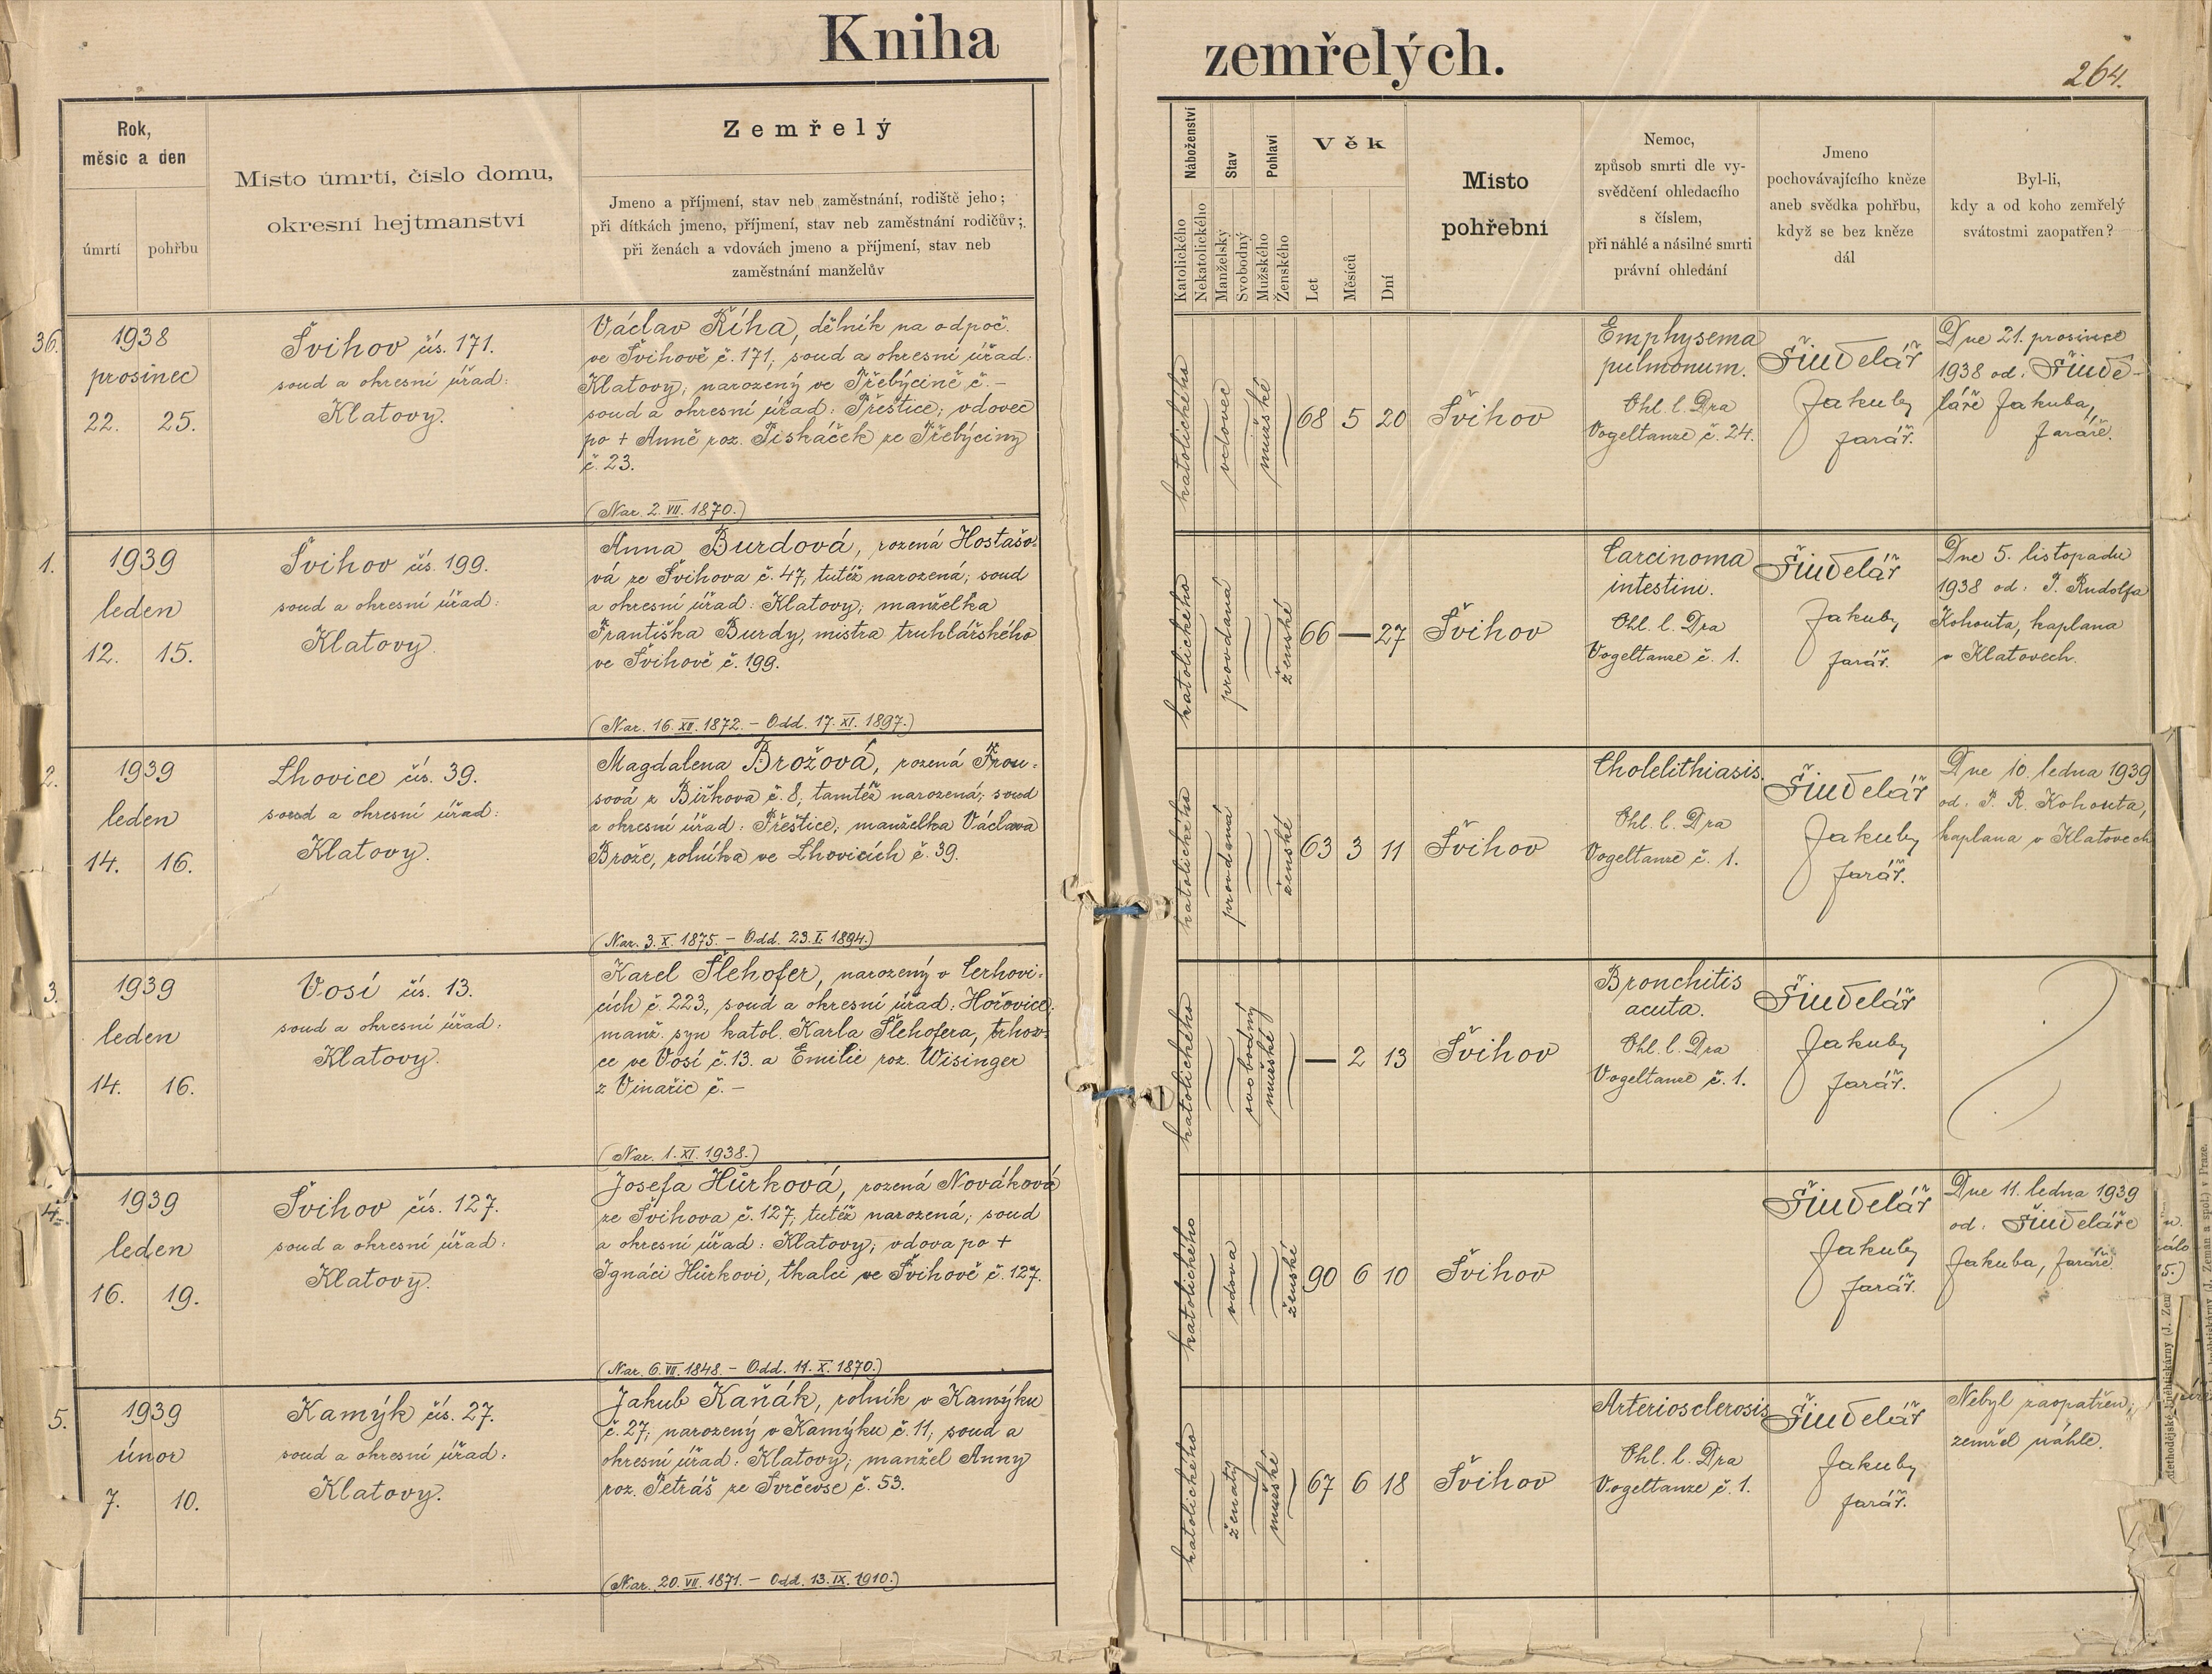 Kniha zemřelých.
264.
Rok,
měsíc a den
úmrtí
pohřbu
Místo úmrtí, číslo domu,
okresní hejtmanství
Zemřelý
Jmeno a příjmení, stav neb zaměstnání, rodiště jeho;
při dítkách jmeno, příjmení, stav neb zaměstnání rodičův;
při ženách a vdovách jmeno a příjmení, stav neb
zaměstnání manželův
Náboženství
Katolického
Nekatolického
Stav
Manželský
Svobodný
Pohlaví
Mužského
Ženského
Věk
Let
Měsíců
Dní
Místo
pohřební
Nemoc,
způsob smrti dle vy-
svědčení ohledacího
s číslem,
při náhlé a násilné smrti
právní ohledání
Jmeno
pochovávajícího kněze
aneb svědka pohřbu,
když se bez kněze
dál
Byl-li,
kdy a od koho zemřelý
svátostmi zaopatřen?
36.
1938
prosinec
22. 25.
Švihov čís. 171.
soud a okresní úřad:
Klatovy.
Václav Říha, dělník na odpoč.
ve Švihově č. 171, soud a okresní úřad:
Klatovy; narozený ve Třebýcině č. –
soud a okresní úřad: Přeštice; vdovec
po + Anně roz. Piskáček ze Třebýciny
č. 23.
(Nar. 2. VII. 1870.)
katolického
vdovec
mužské
68 5 20
Švihov
Emphysema
pulmonum.
Ohl. l. Dra
Vogeltanze č. 24.
Šindelář
Jakub,
farář.
Dne 21. prosince
1938 od: Šinde-
láře Jakuba,
faráře.
1.
1939
leden
12. 15.
Švihov čís. 199.
soud a okresní úřad:
Klatovy.
Anna Burdová, rozená Hostašo-
vá ze Švihova č. 47, tutéž narozená; soud
a okresní úřad: Klatovy; manželka
Františka Burdy, mistra truhlářského
ve Švihově č. 199.
(Nar. 16. XII. 1872. – Odd. 17. XI. 1897.)
katolického
provdaná
ženské
66 — 27
Švihov
Carcinoma
intestini.
Ohl. l. Dra
Vogeltanze č. 1.
Šindelář
Jakub,
farář.
Dne 5. listopadu
1938 od: P. Rudolfa
Kohouta, kaplana
v Klatovech.
2.
1939
leden
14. 16.
Lhovice čís. 39.
soud a okresní úřad:
Klatovy.
Magdalena Brožová, rozená Frou-
sová z Biřkova č. 8, tamtéž narozená; soud
a okresní úřad: Přeštice; manželka Václava
Brože, rolníka ve Lhovicích č. 39.
(Nar. 3. X. 1875. – Odd. 23. I. 1894.)
katolického
provdaná
ženské
63 3 11
Švihov
Cholelithiasis.
Ohl. l. Dra
Vogeltanze č. 1.
Šindelář
Jakub,
farář.
Dne 10. ledna 1939
od: P. R. Kohouta,
kaplana v Klatovech
3.
1939
leden
14. 16.
Vosí čís. 13.
soud a okresní úřad:
Klatovy.
Karel Šlehofer, narozený v Cerhovi-
cích č. 223., soud a okresní úřad: Hořovice;
manž. syn katol. Karla Šlehofera, trhov-
ce ve Vosí č. 13. a Emilie roz. Wisinger
z Vinařic č. –
(Nar. 1. XI. 1938.)
katolického
svobodný
mužské
— 2 13
Švihov
Bronchitis
acuta.
Ohl. l. Dra
Vogeltanze č. 1.
Šindelář
Jakub,
farář.
4.
1939
leden
16. 19.
Švihov čís. 127.
soud a okresní úřad:
Klatovy.
Josefa Hůrková, rozená Nováková
ze Švihova č. 127, tutéž narozená; soud
a okresní úřad: Klatovy; vdova po +
Ignáci Hůrkovi, tkalci ve Švihově č. 127.
(Nar. 6. VII. 1848. – Odd. 11. X. 1870.)
katolického
vdova
ženské
90 6 10
Švihov
Šindelář
Jakub,
farář.
Dne 11. ledna 1939
od: Šindeláře
Jakuba, faráře.
5.
1939
únor
7. 10.
Kamýk čís. 27.
soud a okresní úřad:
Klatovy.
Jakub Kaňák, rolník v Kamýku
č. 27; narozený v Kamýku č. 11; soud a
okresní úřad: Klatovy; manžel Anny
roz. Petráš ze Svrčevse č. 53.
(Nar. 20. VII. 1871. – Odd. 13. IX. 1910.)
katolického
ženatý
mužské
67 6 18
Švihov
Arteriosclerosis
Ohl. l. Dra
Vogeltanze č. 1.
Šindelář
Jakub,
farář.
Nebyl zaopatřen;
zemřel náhle.